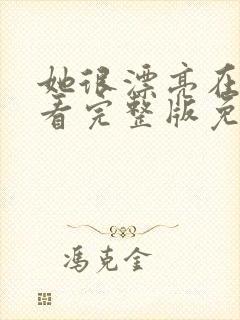 她很漂亮在
看完整版免
冯克金